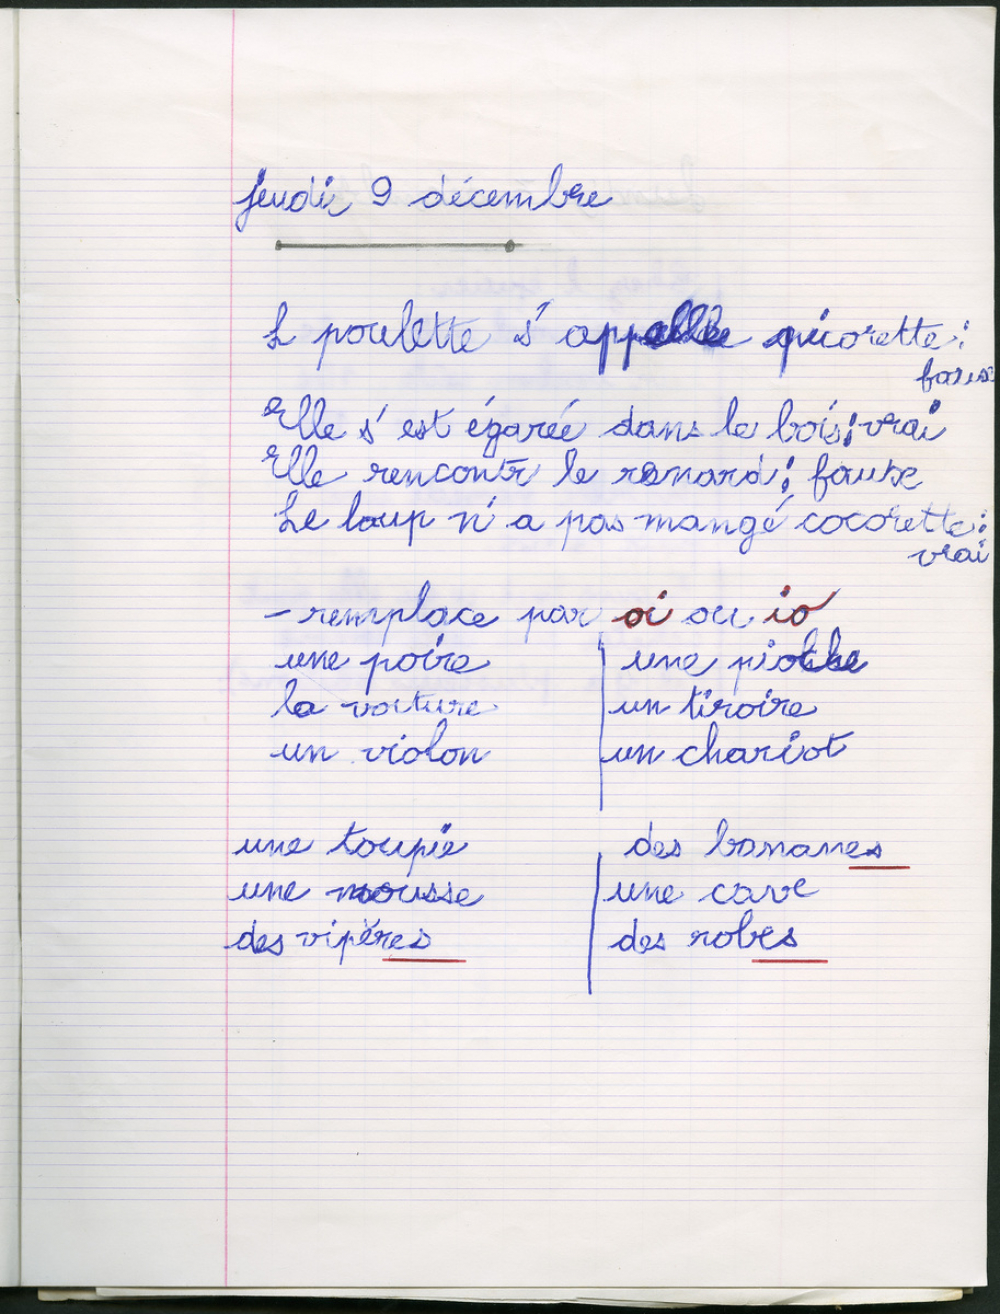 jeudi 9 décembre
L poulette s'appelle picorette :
faux
Elle s'est égarée dans le bois : vrai
Elle rencontr le renard : fausse
Le loup n'a pas mangé cocorette :
vrai
- remplace par oi ou io
une poire une pioche
la voiture un tiroire
un violon un chariot
une toupie des bananes
une mousse une cave
des vipères des robes